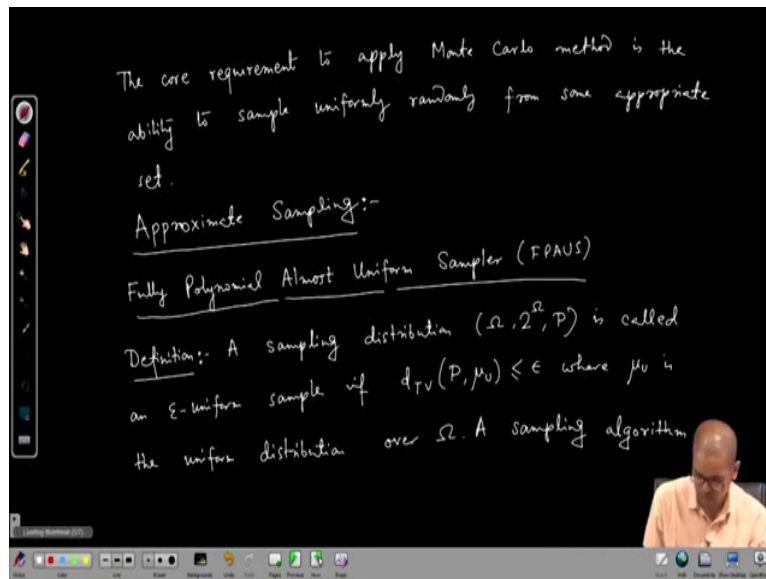 The core requirement to apply Monte Carlo method is the
ability to sample uniformly randomly from some appropriate
set.
Approximate Sampling:-
Fully Polynomial Almost Uniform Sampler (FPAUS)
Definition:- A sampling distribution (Ω, 2^Ω, P) is called
an ε-uniform sample if d_TV(P, μ_U) ≤ ε where μ_U is
the uniform distribution over Ω. A sampling algorithm